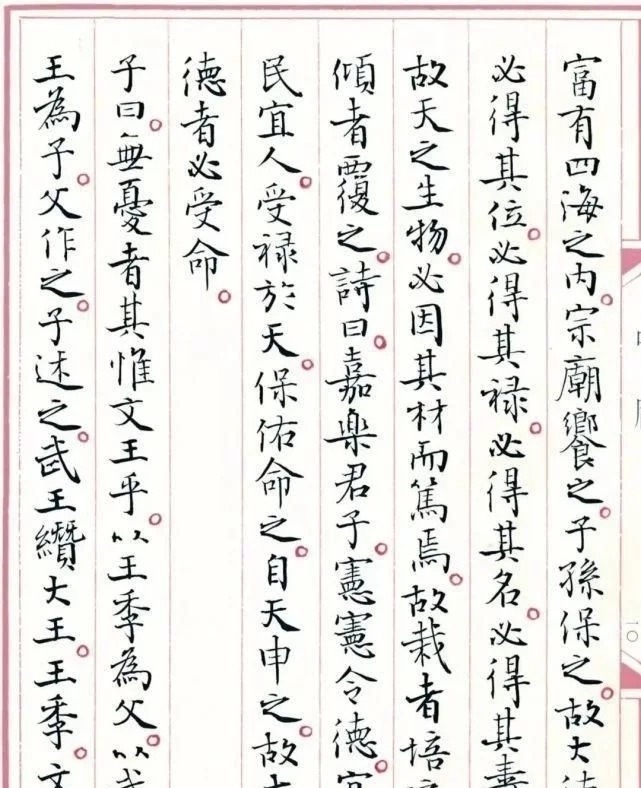 富有四海之内。宗廟饗之。子孫保之。故大
必得其位。必得其禄。必得其名。必得其壽
故天之生物。必因其材而篤焉。故栽者培
傾者覆之。詩曰。嘉樂君子。憲憲令德。宜
民宜人。受禄於天。保佑命之。自天申之。故大
德者必受命。
子曰。無憂者其惟文王乎。以王季為父。以武
王為子。父作之。子述之。武王纘大王。王季。文
一〇